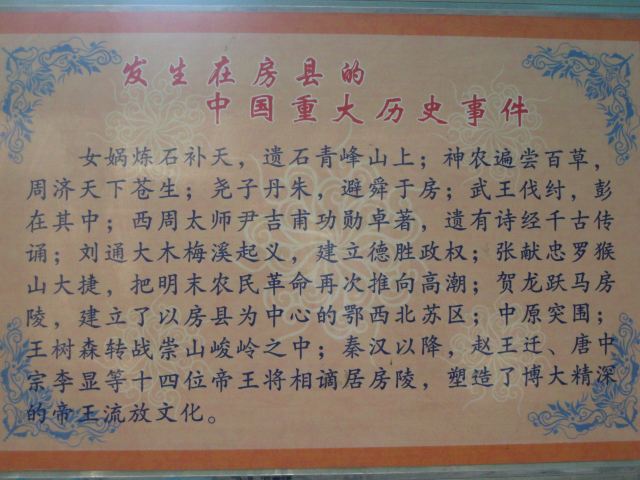 发生在房县的
中国重大历史事件
女娲炼石补天，遗石青峰山上；神农遍尝百草，
周济天下苍生；尧子丹朱，避舜于房；武王伐纣，彭
在其中；西周太师尹吉甫功勋卓著，遗有诗经千古传
诵；刘通大木梅溪起义，建立德胜政权；张献忠罗猴
山大捷，把明末农民革命再次推向高潮；贺龙跃马房
陵，建立了以房县为中心的鄂西北苏区；中原突围；
王树森转战崇山峻岭之中；秦汉以降，赵王迁、唐中
宗李显等十四位帝王将相谪居房陵，塑造了博大精深
的帝王流放文化。